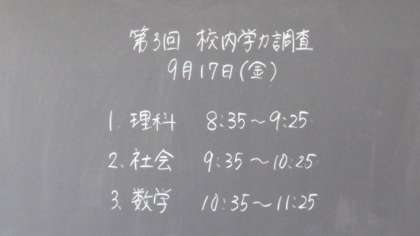 第3回 校内学力調査
9月17日(金)
1. 理科 8:35～9:25
2. 社会 9:35～10:25
3. 数学 10:35～11:25